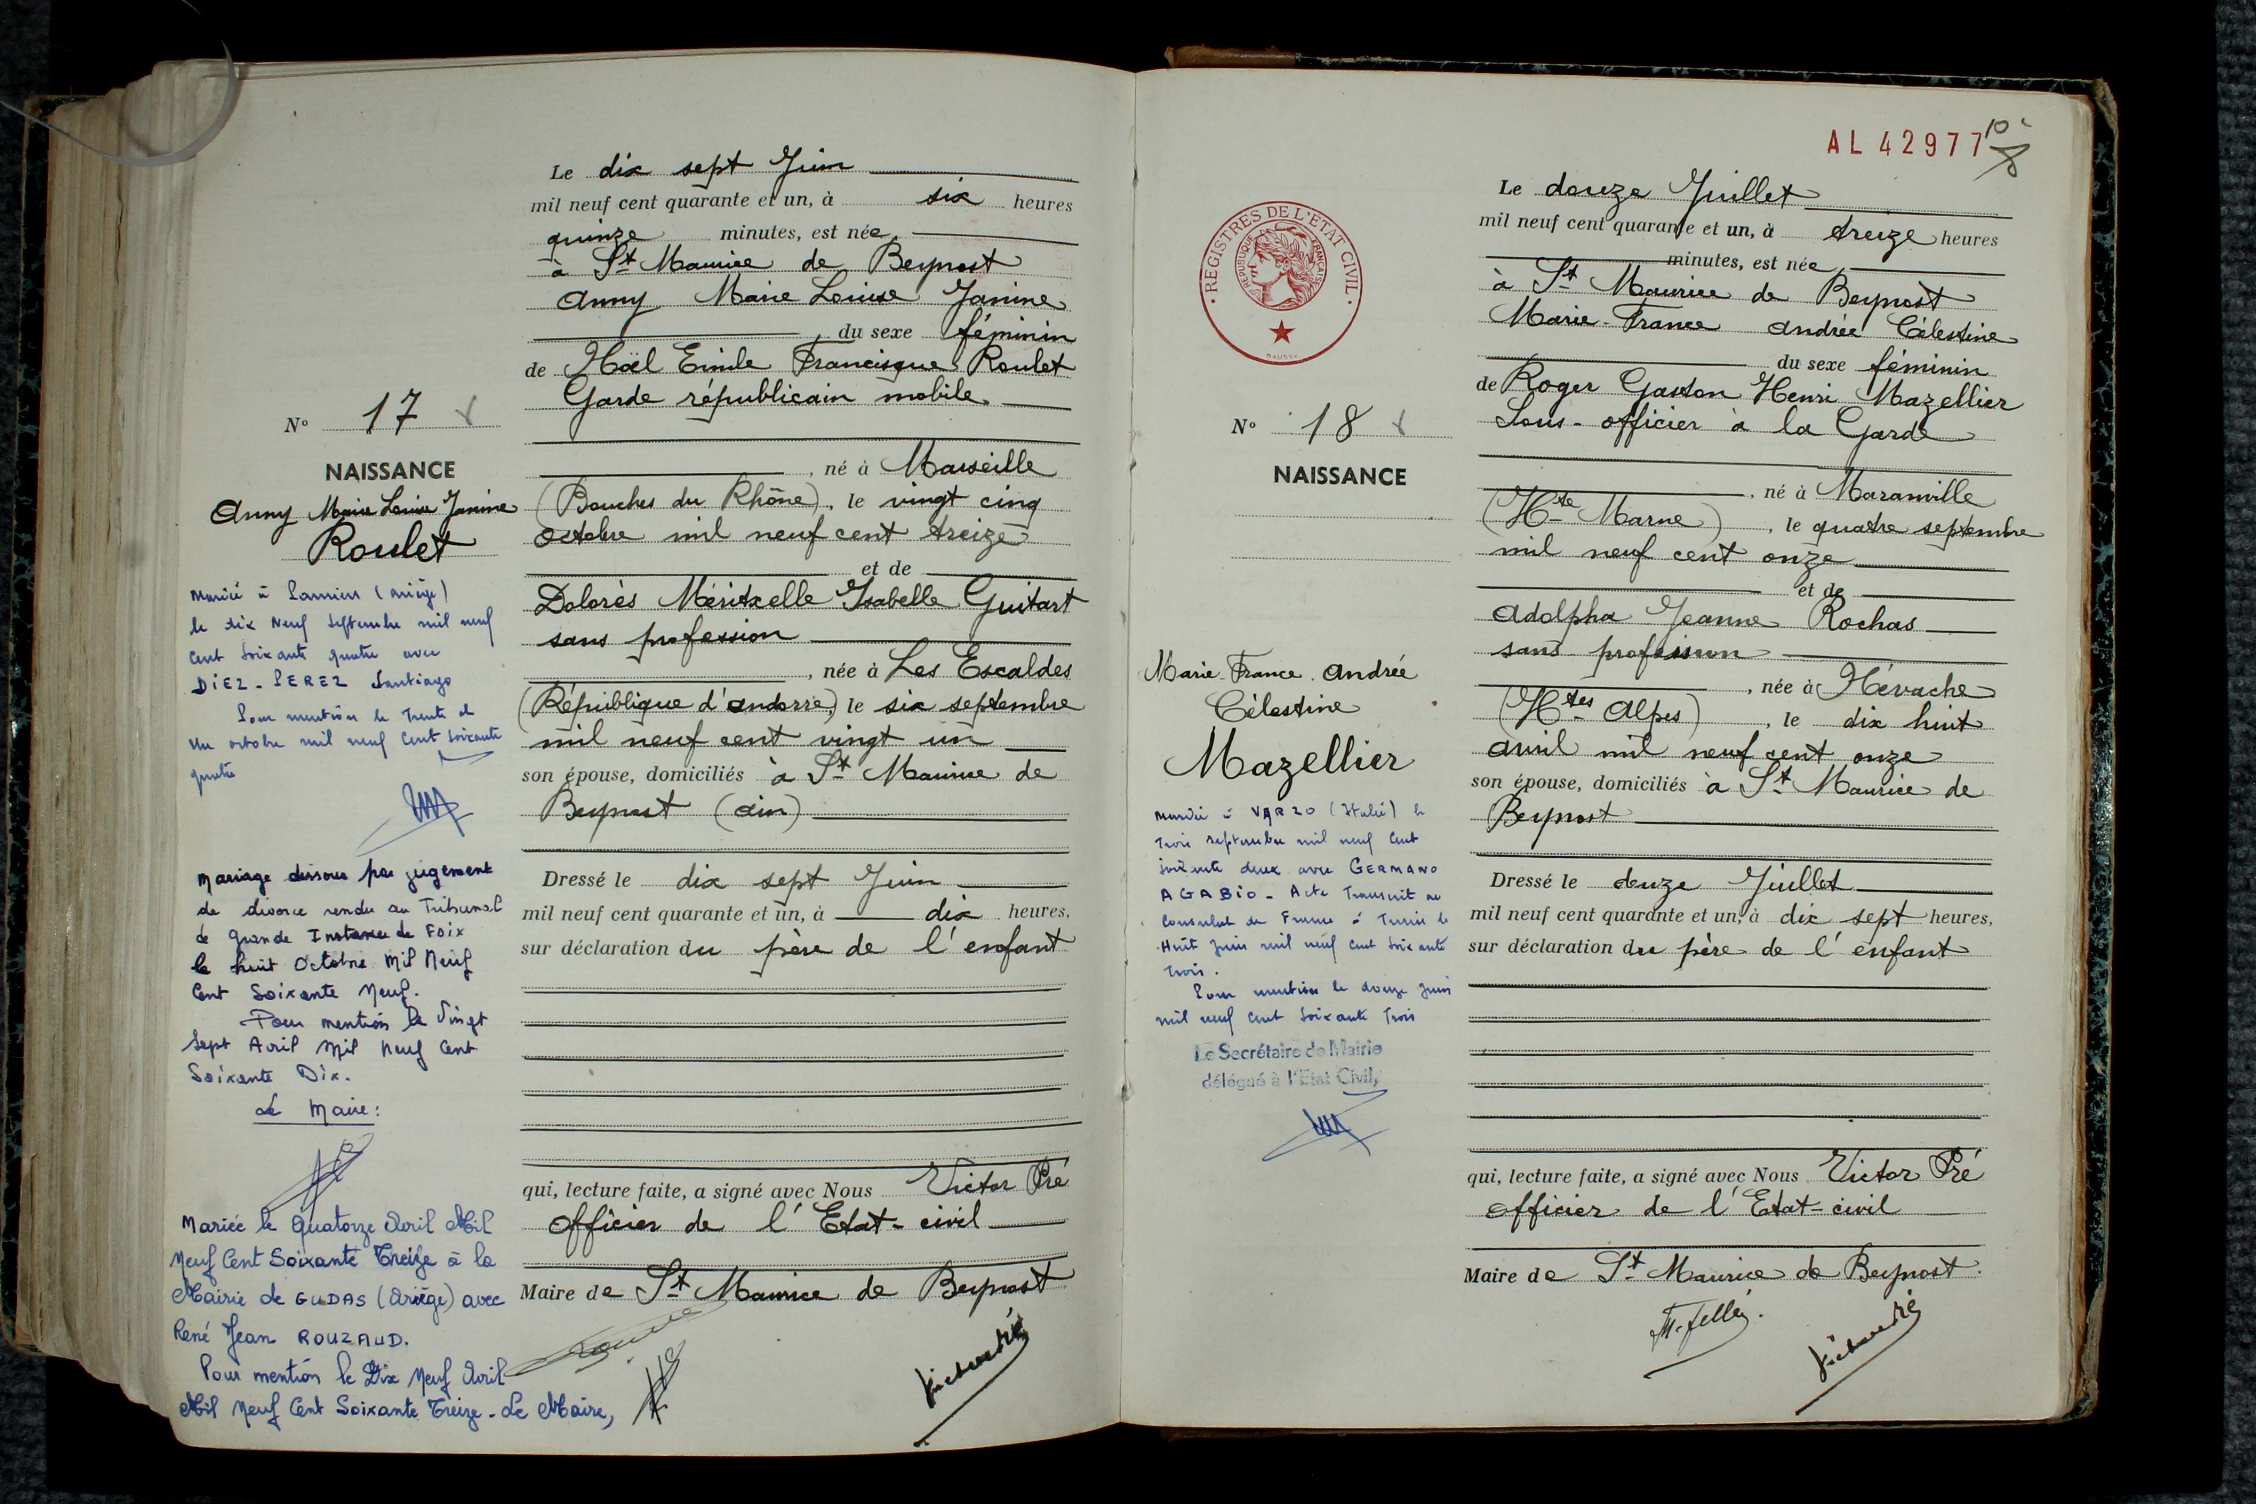 Le dix sept Juin
mil neuf cent quarante et un, à six heures
quinze minutes, est née
à St Maurice de Beynost
Anny Marie Louise Janine
du sexe féminin
de Noël Emile Francisque Roulet
Garde républicain mobile
N° 17
NAISSANCE
Anny Marie Louise Janine
Roulet
, né à Marseille
(Bouches du Rhône), le vingt cinq
octobre mil neuf cent treize
et de
Dolorès Méritxelle Isabelle Guitart
sans profession
, née à Les Escaldes
(République d'Andorre), le six septembre
mil neuf cent vingt un
son épouse, domiciliés à St Maurice de
Beynost (Ain)
Dressé le dix sept Juin
mil neuf cent quarante et un, à dix heures,
sur déclaration du père de l'enfant
qui, lecture faite, a signé avec Nous Victor Pré
officier de l'Etat-civil
Maire de St Maurice de Beynost
Mariée à Pamiers (Ariège)
le dix neuf septembre mil neuf
cent soixante quatre avec
DIEZ-PEREZ Santiago
Pour mention le trente et
un octobre mil neuf cent soixante
quatre
Mariage dissous par jugement
de divorce rendu au Tribunal
de Grande Instance de Foix
le huit Octobre Mil Neuf
Cent Soixante Neuf.
Pour mention le Vingt
Sept Avril Mil Neuf Cent
Soixante Dix.
Le Maire :
Mariée le Quatorze Avril Mil
Neuf Cent Soixante Treize à la
Mairie de GUDAS (Ariège) avec
René Jean ROUZAUD.
Pour mention le Dix Neuf Avril
Mil Neuf Cent Soixante Treize - Le Maire,
AL 42977
REGISTRES DE L'ETAT CIVIL
REPUBLIQUE FRANÇAISE
Le douze Juillet
mil neuf cent quarante et un, à treize heures
minutes, est née
à St Maurice de Beynost
Marie-France Andrée Célestine
du sexe féminin
de Roger Gaston Henri Mazellier
Sous-officier à la Garde
N° 18
NAISSANCE
Marie-France Andrée
Célestine
Mazellier
, né à Maranville
(Hte Marne), le quatre septembre
mil neuf cent onze
et de
Adolpha Jeanne Rochas
sans profession
, née à Névache
(Htes Alpes), le dix huit
avril mil neuf cent onze
son épouse, domiciliés à St Maurice de
Beynost
Dressé le douze Juillet
mil neuf cent quarante et un, à dix sept heures,
sur déclaration du père de l'enfant
qui, lecture faite, a signé avec Nous Victor Pré
officier de l'Etat-civil
Maire de St Maurice de Beynost.
Mariée à VARZO (Italie) le
trois septembre mil neuf cent
soixante deux avec GERMANO
AGABIO - Acte transcrit au
Consulat de France à Turin le
Huit juin mil neuf cent soixante
trois.
Pour mention le douze juin
mil neuf cent soixante trois
Le Secrétaire de Mairie
délégué à l'Etat Civil,